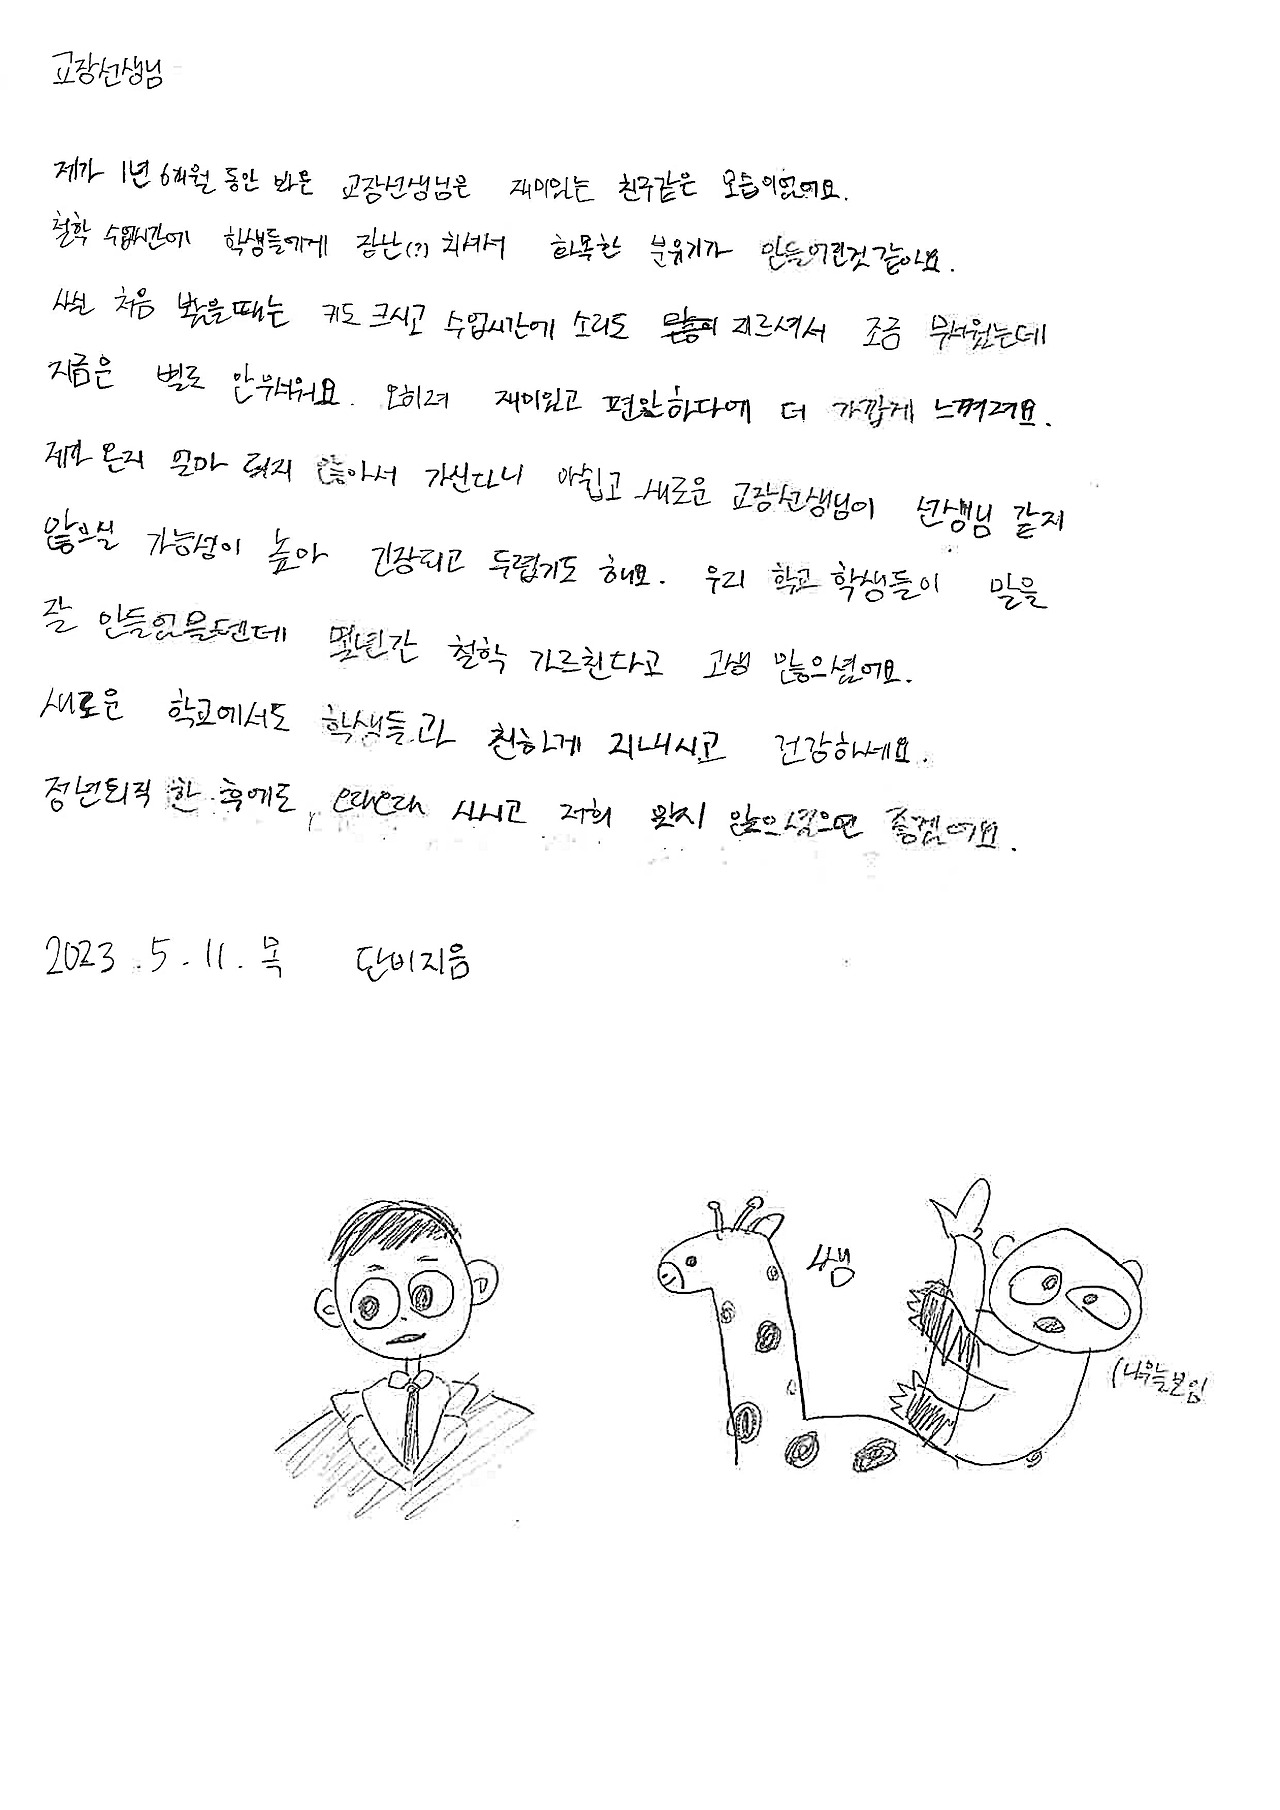 교장선생님
제가 1년 6개월 동안 봐온 교장선생님은 재미있는 친구같은 모습이었어요.
철학 수업시간에 학생들에게 장난(?) 치셔서 화목한 분위기가 만들어진것 같아요.
사실 처음 봤을때는 키도 크시고 수업시간에 소리도 많이 지르셔서 조금 무서웠는데
지금은 별로 안무서워요. 오히려 재미있고 편안하다에 더 가깝게 느껴져요.
제가 온지 얼마 되지 않아서 가신다니 아쉽고 새로운 교장선생님이 선생님 같지
않으실 가능성이 높아 긴장되고 두렵기도 해요. 우리 학교 학생들이 말을
잘 안들었을텐데 몇년간 철학 가르친다고 고생 많으셨어요.
새로운 학교에서도 학생들과 친하게 지내시고 건강하세요.
정년퇴직 한 후에도 오래오래 사시고 저희 잊지 않으셨으면 좋겠어요.
2023.5.11.목 단비지음
쌤